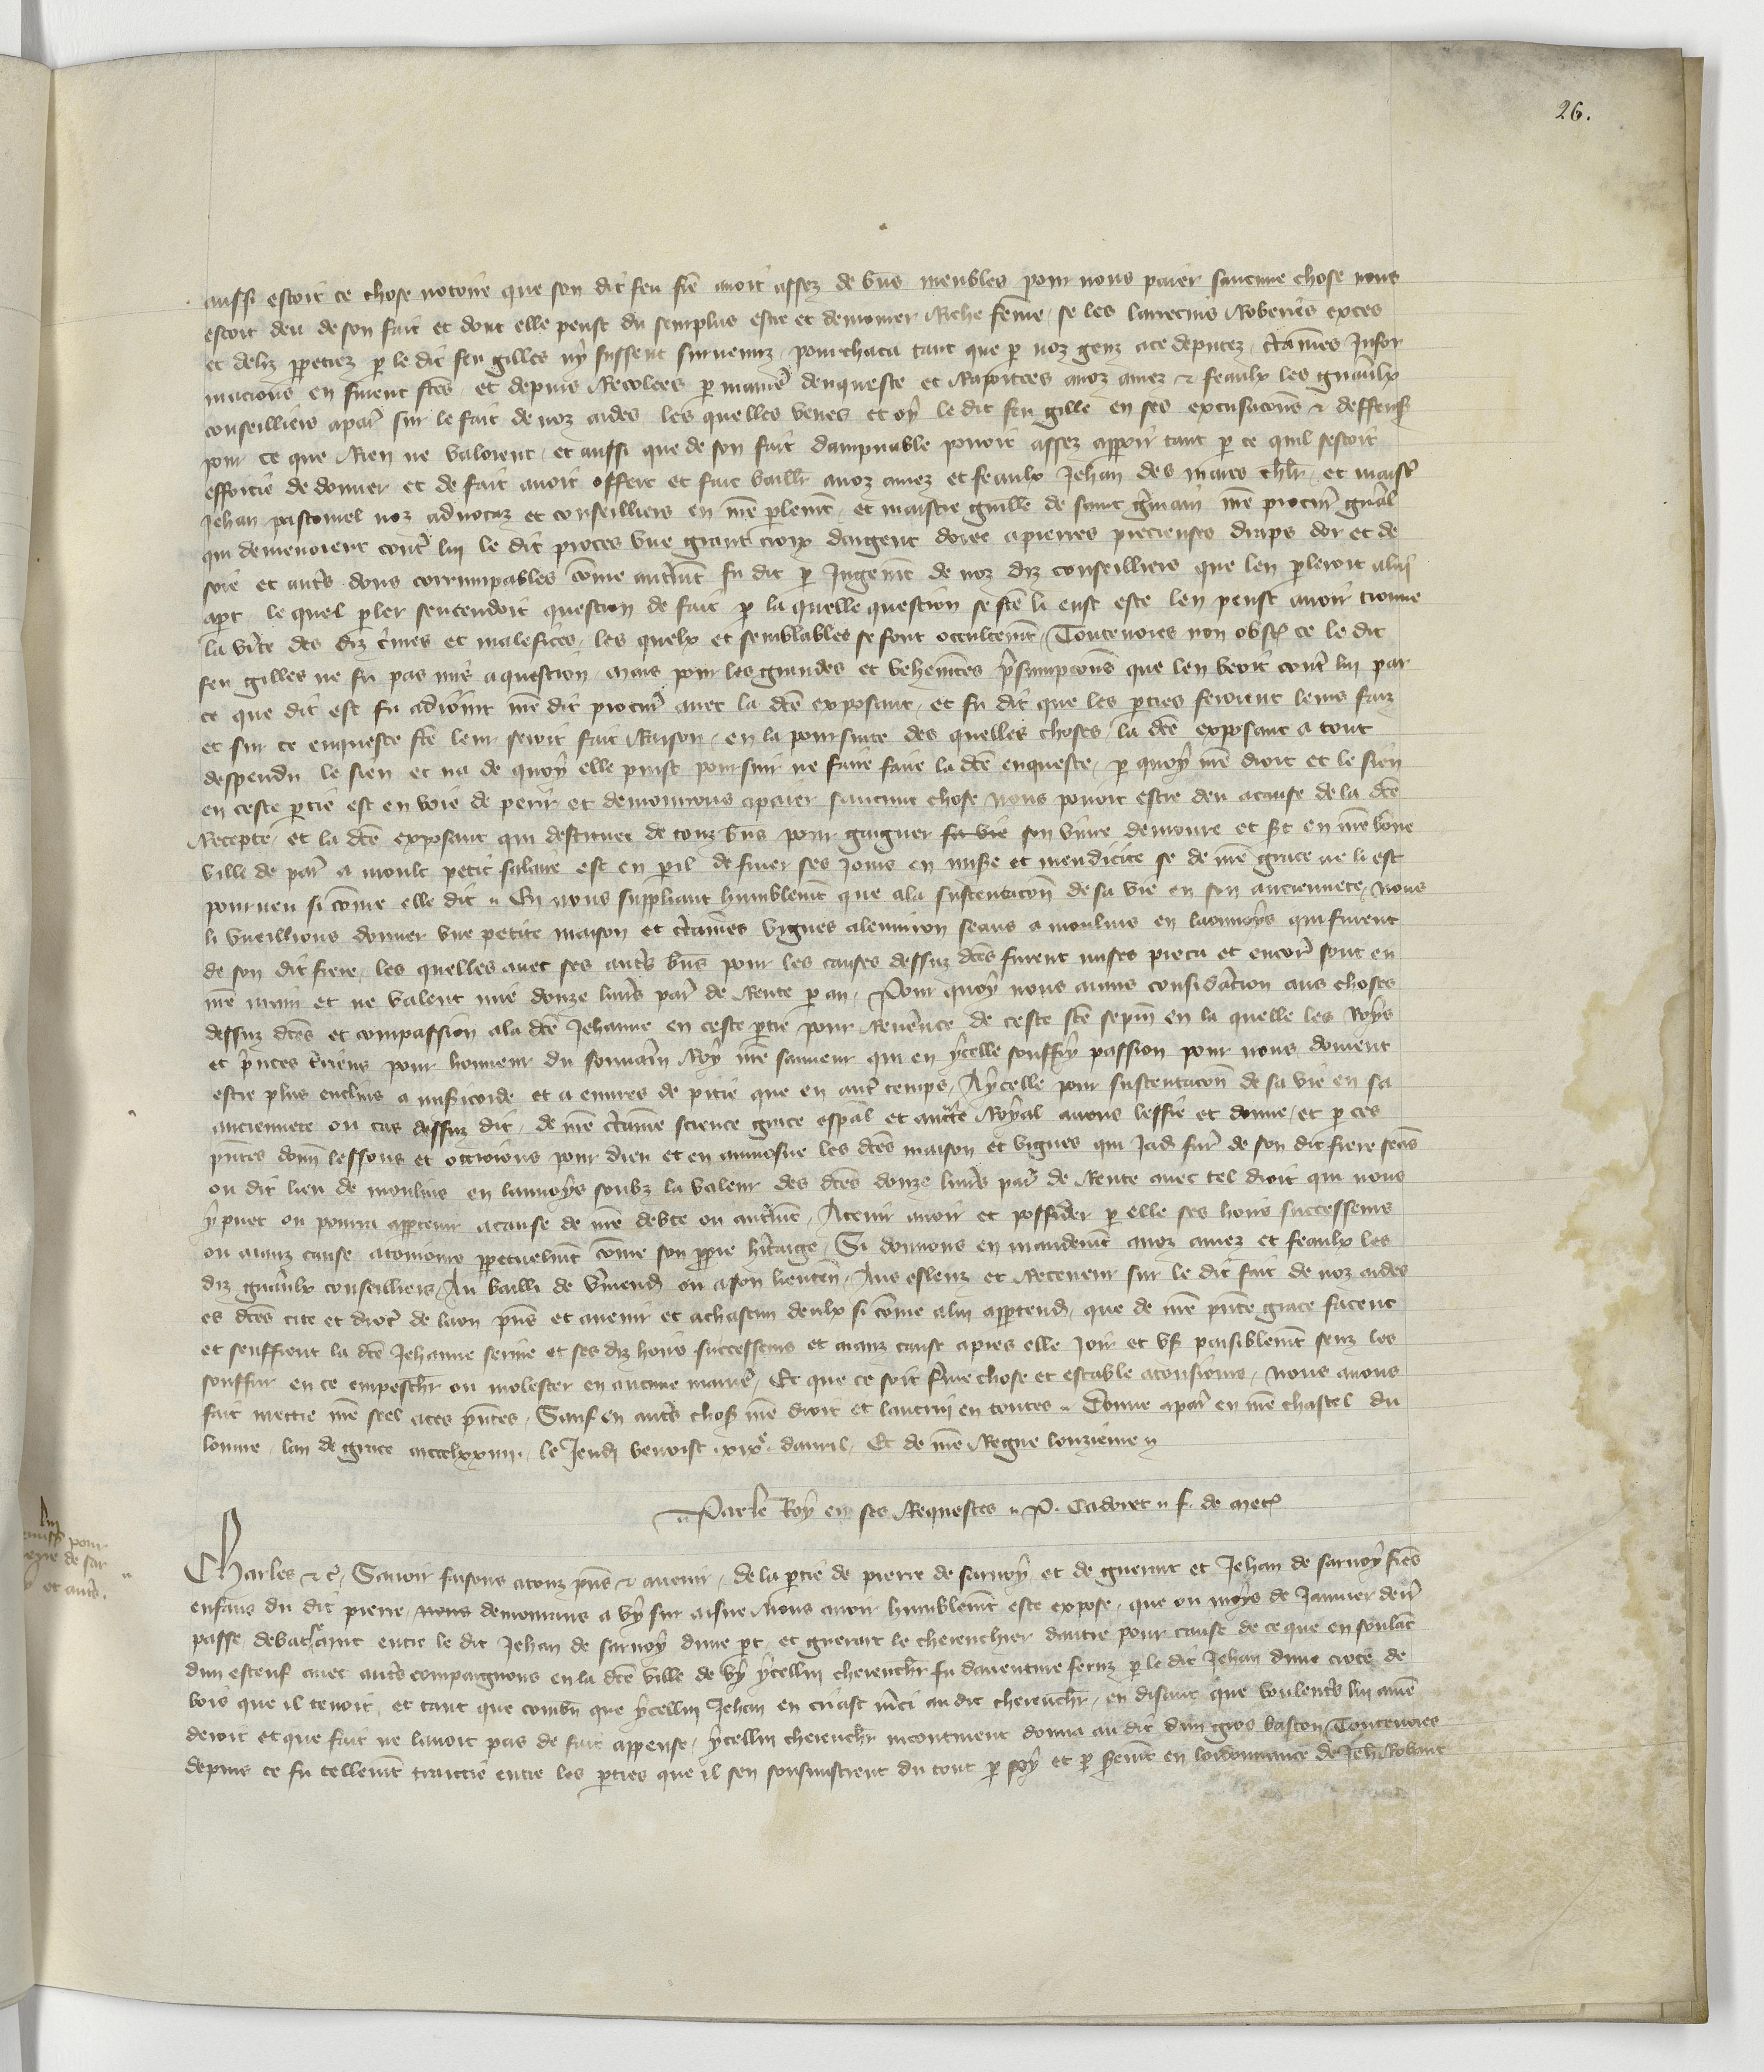 26.
aussi estoit ce chose notoire que son dit feu fre avoit assez de bns meubles pour nous paier saucune chose nous
estoit deu de son fait et dont elle peust du semplus estre et demourer Riche feme se les larrecins Roberies exces
et deliz ppetrez p le dit feu gilles ny fussent survenuz pourchaca tant que p noz genz ace deputez ctaines Infor
macions en furent fctes et depuis Recolees p maniere denqueste et Raportees anoz amez & feaulx les gnaulx
conseilliers apar sur le fait de noz aides les quelles veues et oy le dit feu gille en ses excusacons & deffenss
pour ce que Rien ne valoient et aussi que de son fait dampnable povoit assez apparoir tant p ce quil sestoit
efforcie de donner et de fait avoit offert et fait baillr anoz amez et feaulx Jehan des mares chlr et maistr
Jehan pastourel noz advocaz et conseilliers en nre plemt et maistre guille de saint gmain nre procur gnal
qui demenoient contr lui le dit proces une grant croix dargent doree apierres precieuses draps dor et de
soie et autrs dons corrumpables come autremt fu dit p Jugemt de noz diz conseilliers que len pleroit alui
apt le quel pler sentendoit question de fait p la quelle question se fcte li eust este len peust avoir trouve
la vite des diz crimes et malefices les quelx et semblables se font occultemt Toutevoies non obst ce le dit
feu gilles ne fu pas mis aquestion mais pour les grandes et vehemtes psumpcons que len veoit contr lui par
ce que dit est fu adioint nre dit procur avec la dcte exposant et fu dit que les pties feroient leurs faiz
et sur ce enqueste fcte leur seroit fait Raison en la poursuite des quelles choses la dcte exposant a tout
despendu le sien et na de quoy elle puist poursuir ne faire faire la dcte enqueste p quoy nre droit et le sien
en ceste ptie est en voie de perir et demourrons apaier saucune chose nous povoit estre deu acause de la dcte
Recepte et la dcte exposant qui destituee de touz bns pour gaigner sa vie son vivre demoure et st en nre bone
ville de par a moult petit salaire est en pil de finer ses Jours en misere et mendicite se de nre grace ne li est
pourveu si come elle dit En nous suppliant humblemt que ala sustentacon de sa vie en son anciennete nous
li vueillions donner une petite maison et ctaines vignes alenviron seans a moulins en laonnoys qui furent
de son dit frere les quelles avec ses autrs bns pour les causes dessuz dctes furent mises pieca et encor sont en
nre main et ne valent mie douze livrs par de Rente p an Pour quoy nous aians consideration aus choses
dessuz dctes et compassion ala dcte Jehanne en ceste ptie pour Reverence de ceste scte sepm en la quelle les Roys
et princes criens pour honneur du souverain Roy nre sauveur qui en ycelle souffry passion pour nous doivent
estre plus enclins a misericorde et a euvres de pitie que en autr temps Aycelle pour sustentacon de sa vie en sa
anciennete ou cas dessuz dit de nre ctaine science grace espal et aucte Royal avons lessie et donne et p ces
pntes donn lessons et octroions pour dieu et en aumosne les dctes maison et vignes qui Jadis furent de son dit frere seans
ou dit lieu de moulins en launoys soubz la valeur des dctes douze livrs par de Rente avec tel droit qui nous
y puet ou pourra appartenir acause de nre debte ou autremt Atenir avoir et posseder p elle ses hoirs successeurs
ou aianz cause atouiours ppetuelmt come son ppre heritaige Si donnons en mandemt anoz amez et feaulx les
diz gnaulx conseilliers Au bailli de vmend ou ason lieuten Aus esleuz et Receveur sur le dit fait de noz aides
es dctes cite et dioc de laon pns et avenir et achascun deulx si come alui appartendr que de nre pnte grace facent
et seuffrent la dcte Jehanne serine et ses diz hoirs successeurs et aianz cause apres elle Joir et user paisiblemt senz les
souffrir en ce empeschr ou molester en aucune manier Et que ce soit ferme chose et estable atousiours nous avons
fait mettre nre scel aces pntes Sauf en autrs choses nre droit et lautrui en toutes Donne apar en nre chastel du
louvre lan de grace mccclxxiiii le Jeudi benoist xixe davril Et de nre Regne lonzieme
Par le Roy en ses Requestes P. Cadoret f. de metz
pour
de sar
et autrs.
Charles &c Savoir faisons atouz pns & avenir de la ptie de pierre de sarnoy et de guerart et Jehan de sarnoy freres
enfans du dit pierre nous demourans a vy sur aisne Nous avoir humblemt este expose que ou moys de Janvier denr
passe debat seaint entre le dit Jehan de sarnoy dune pt et guerart le cherenchier dautre pour cause de ce que en soulat
dun esteuf avec autrs compaignons en la dcte ville de vy ycellui cherenchr fu daventure feruz p le dit Jehan dune croce de
bois que il tenoit et tant que combn que ycellui Jehan en criast mci au dit cherenchr en disant que voulentrs lui amen
deroit et que fait ne lavoit pas de fait appense ycellui cherenchr incontinent donna au dit dun gros baston Toutevoies
depuis ce fu tellemt traictie entre les pties que il sen soubmistrent du tout p foy et p sremt en lordonnance de Jeh Robant